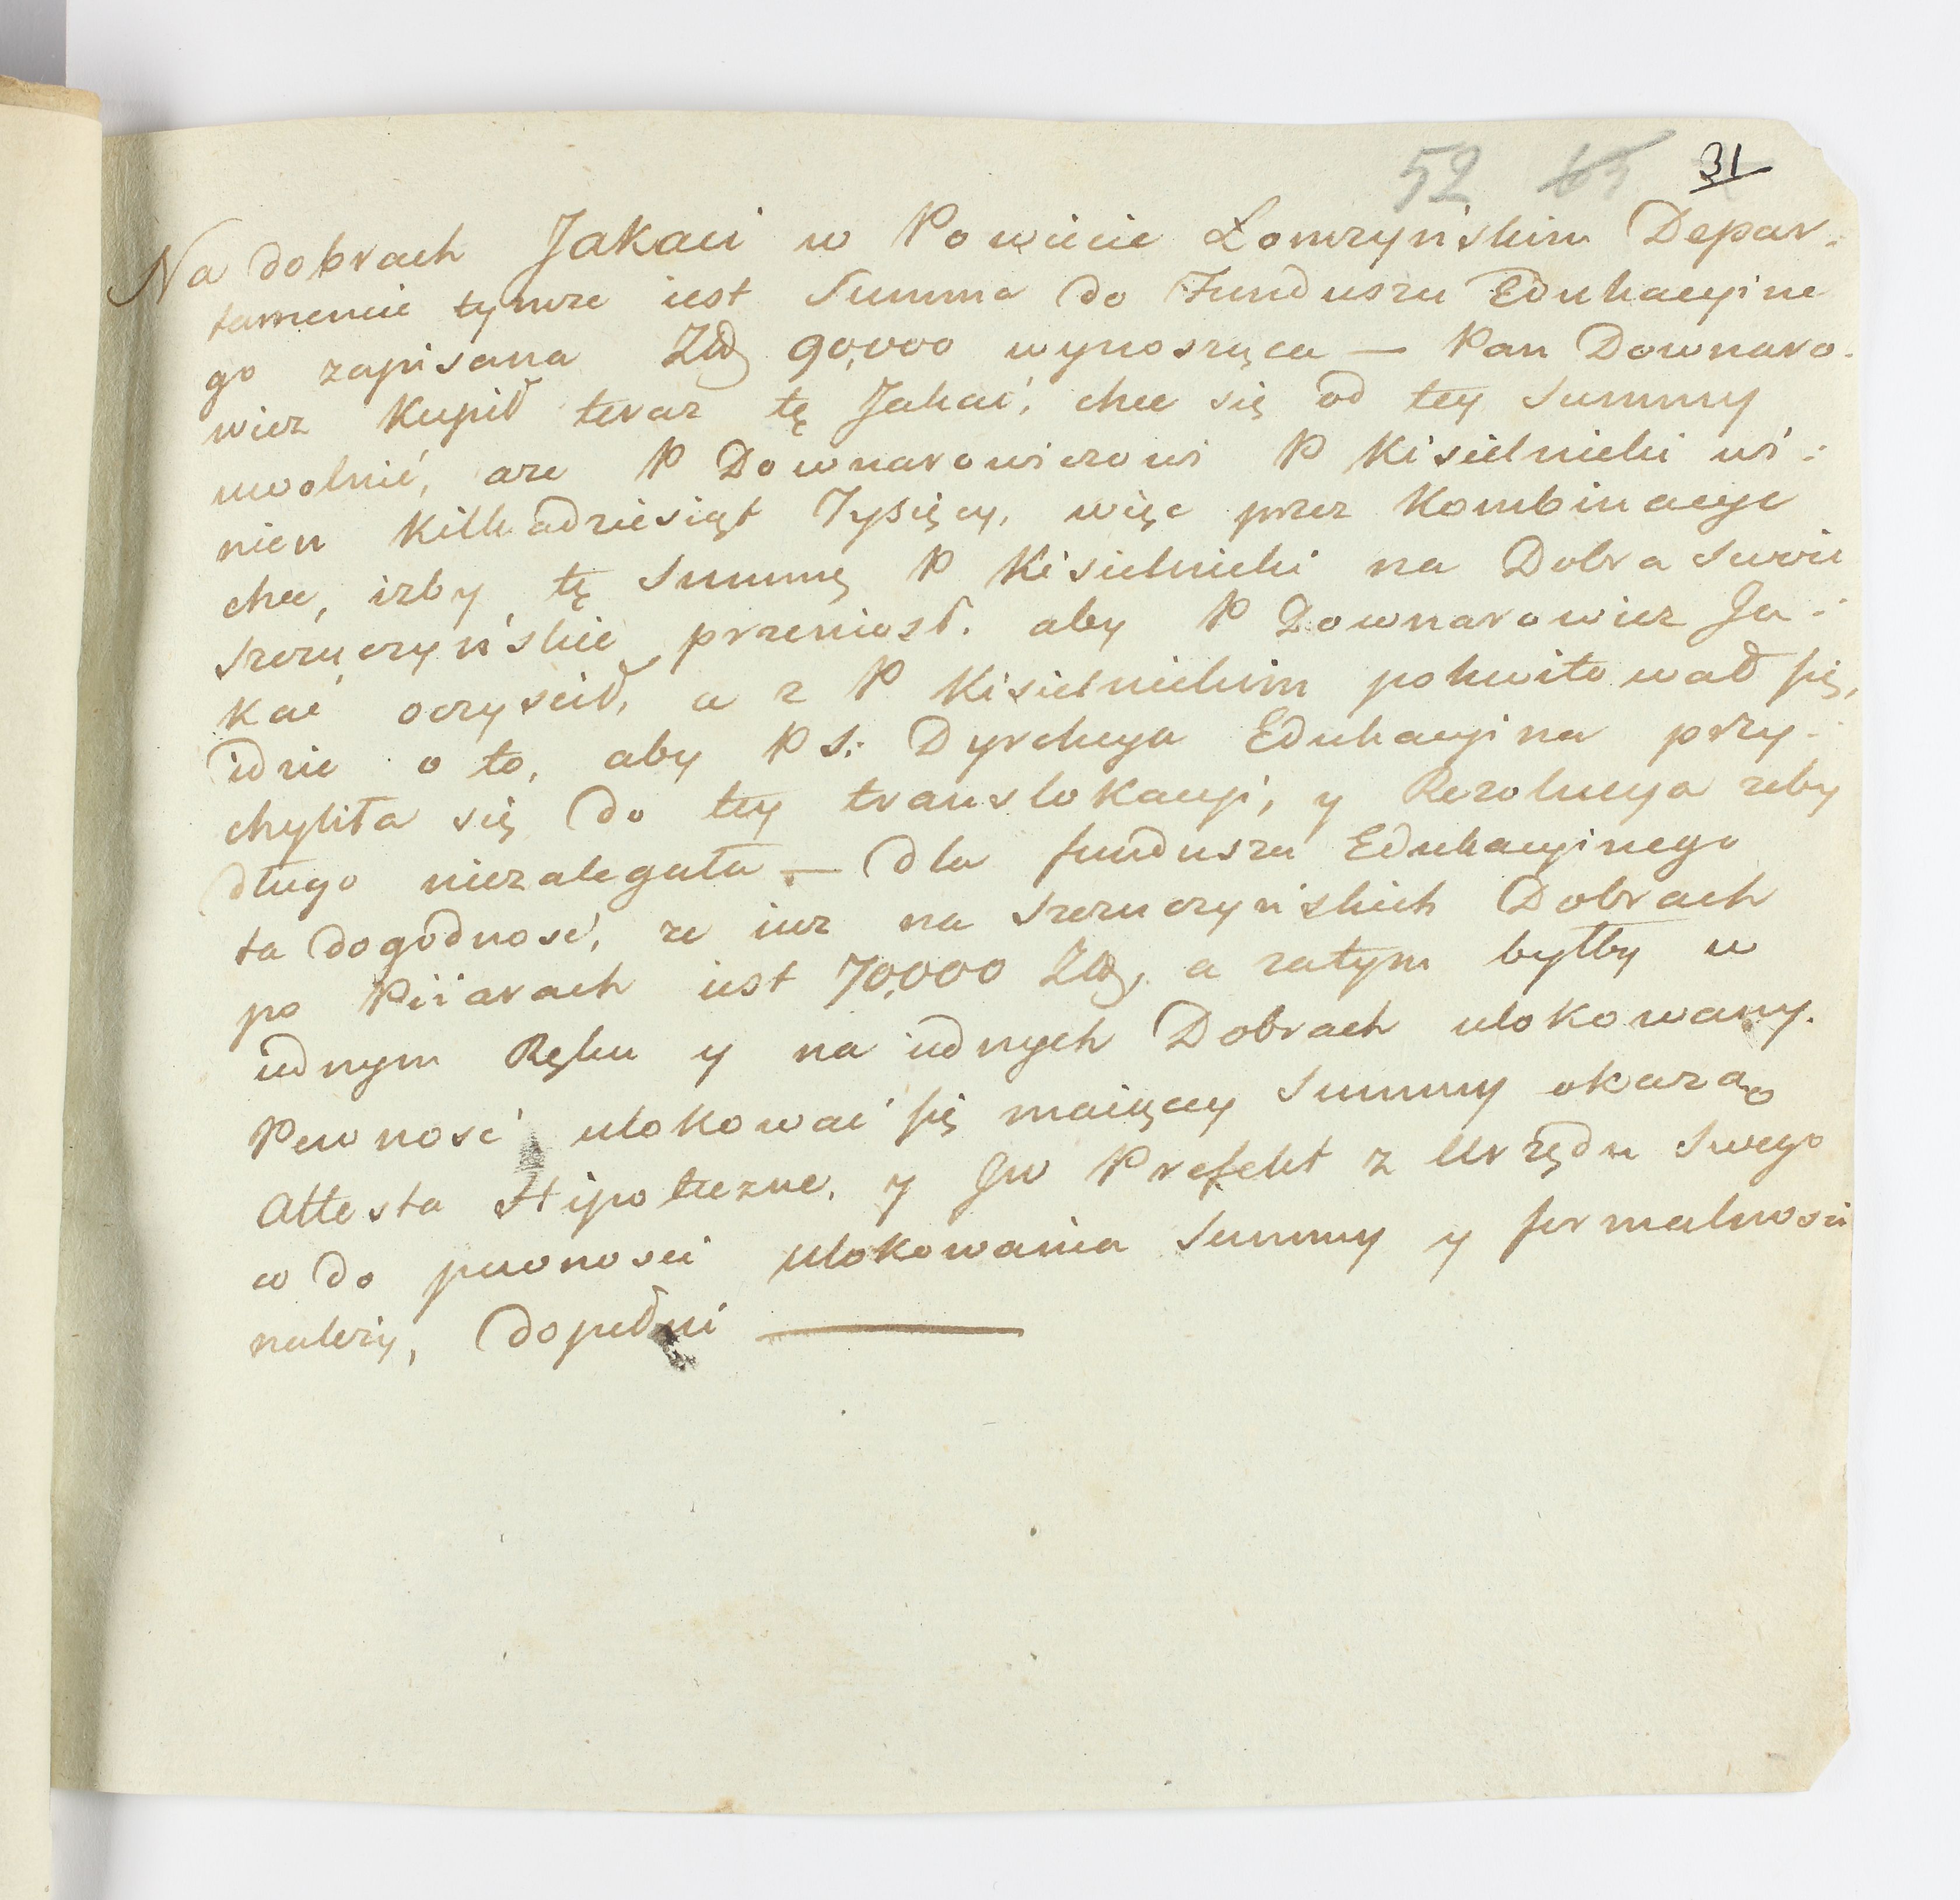 52 31
Na dobrach Jakaci w Powiecie Łomzyńskim Depar-
tamencie tymze iest Summa do Funduszu Edukacyine
go zapisana Złł 90,000 wynosząca — Pan Downaro-
wicz Kupił teraz tę Jakać, chce się od tey Summy
uwolnić, aze P Downarowiczowi P Kisielnicki wi-
nien Kilkadziesiąt Tysięcy, więc przez Kombinacye
chce, izby tę Summę P Kisielnicki na Dobra Swoie
Szczuczyńskie przeniosł. aby P Downarowicz Ja-
kać oczyscił, a z P Kisielnickim pokwitował się,
idzie o to, aby P S: Dyrekcya Edukacyina przy-
chyliła się do tey translokacyi, y Rezolucya zeby
długo niezalegała — dla funduszu Edukacyinego
ta dogodność, ze iuz na Szczuczyńskich Dobrach
po Piiarach iest 70,000 Złł, a zatym byłby w
iednym Ręku y na iednych Dobrach ulokowany.
Pewność ulokować się maiącey Summy okazą
Attesta Hipoteczne, y JW Prefekt z Urzędu Swego
co do pewności ulokowania Summy y formalności
nalezy, dopełni —